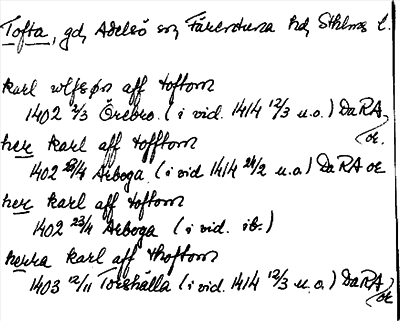 Tofta, gd, Adelsö sn, Färentuna hd, Sthlms l.
karl wlfsøn aff toftom
1402 2/3 Örebro. (i vid. 1414 12/3 u.o.) DaRA,
or.
her karl aff tofftom
1402 23/4 Arboga. (i vid 1414 24/2 u.o) DaRA or
her karl aff toftom
1402 23/4 Arboga (i vid. ib.)
herra karl aff thoftom
1403 12/11 Torshälla (i vid. 1414 12/3 u.o.) DaRA,
or